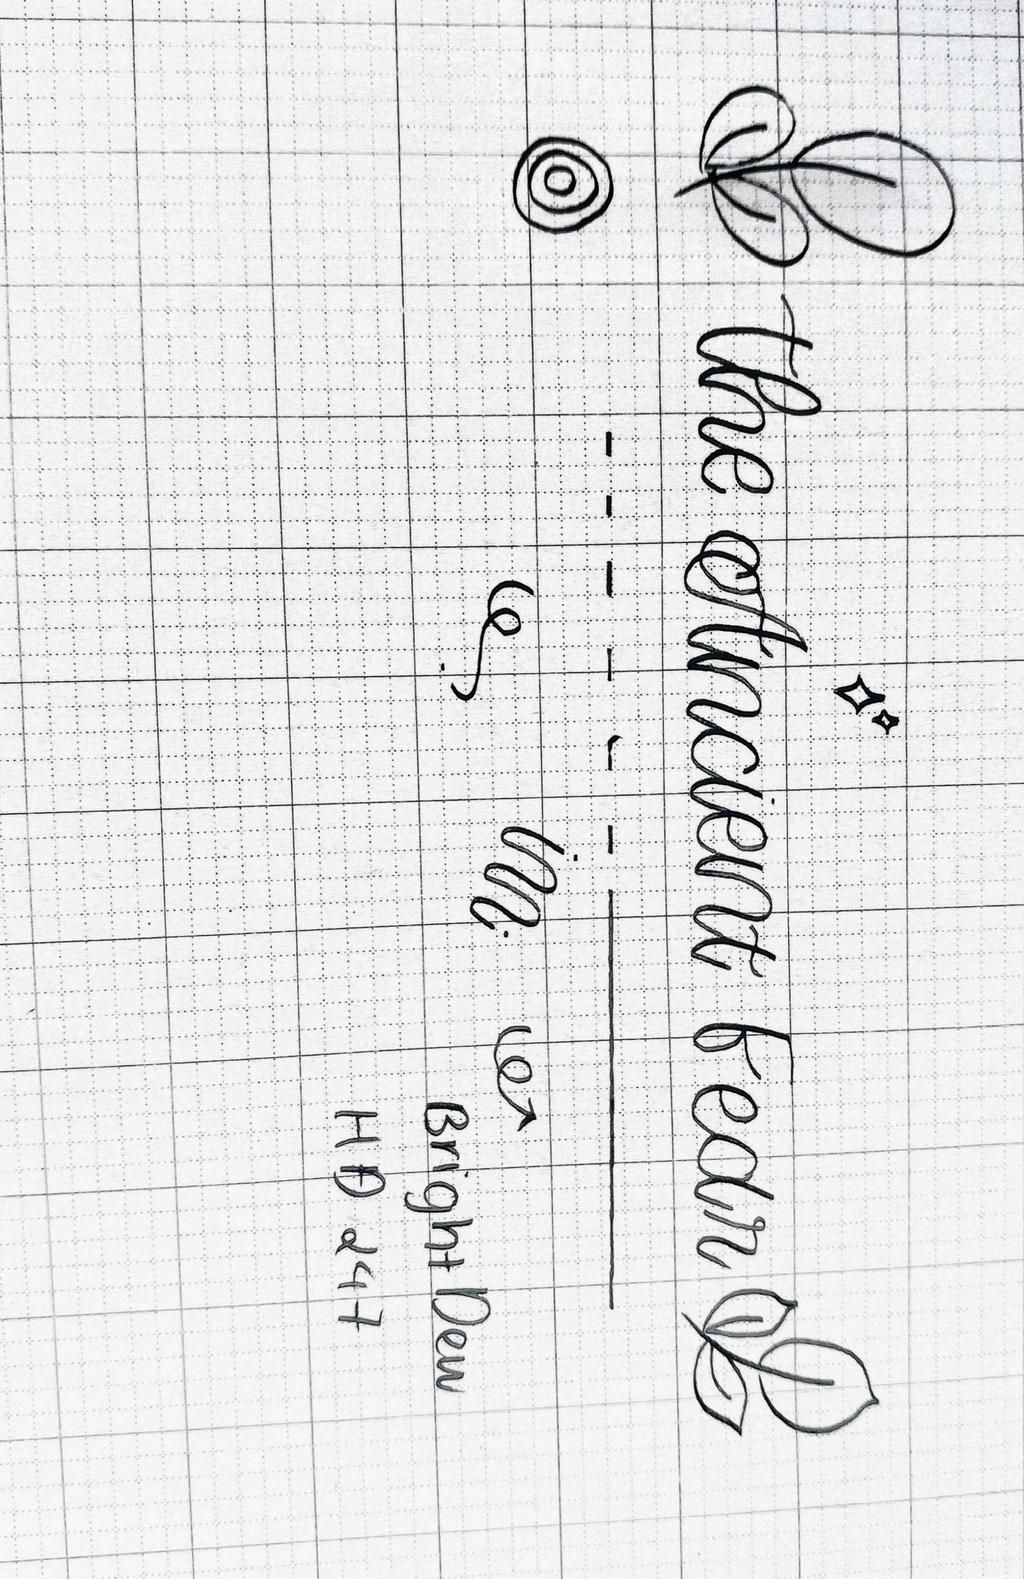 the ancient bear
in
Bright Dew
HD 247